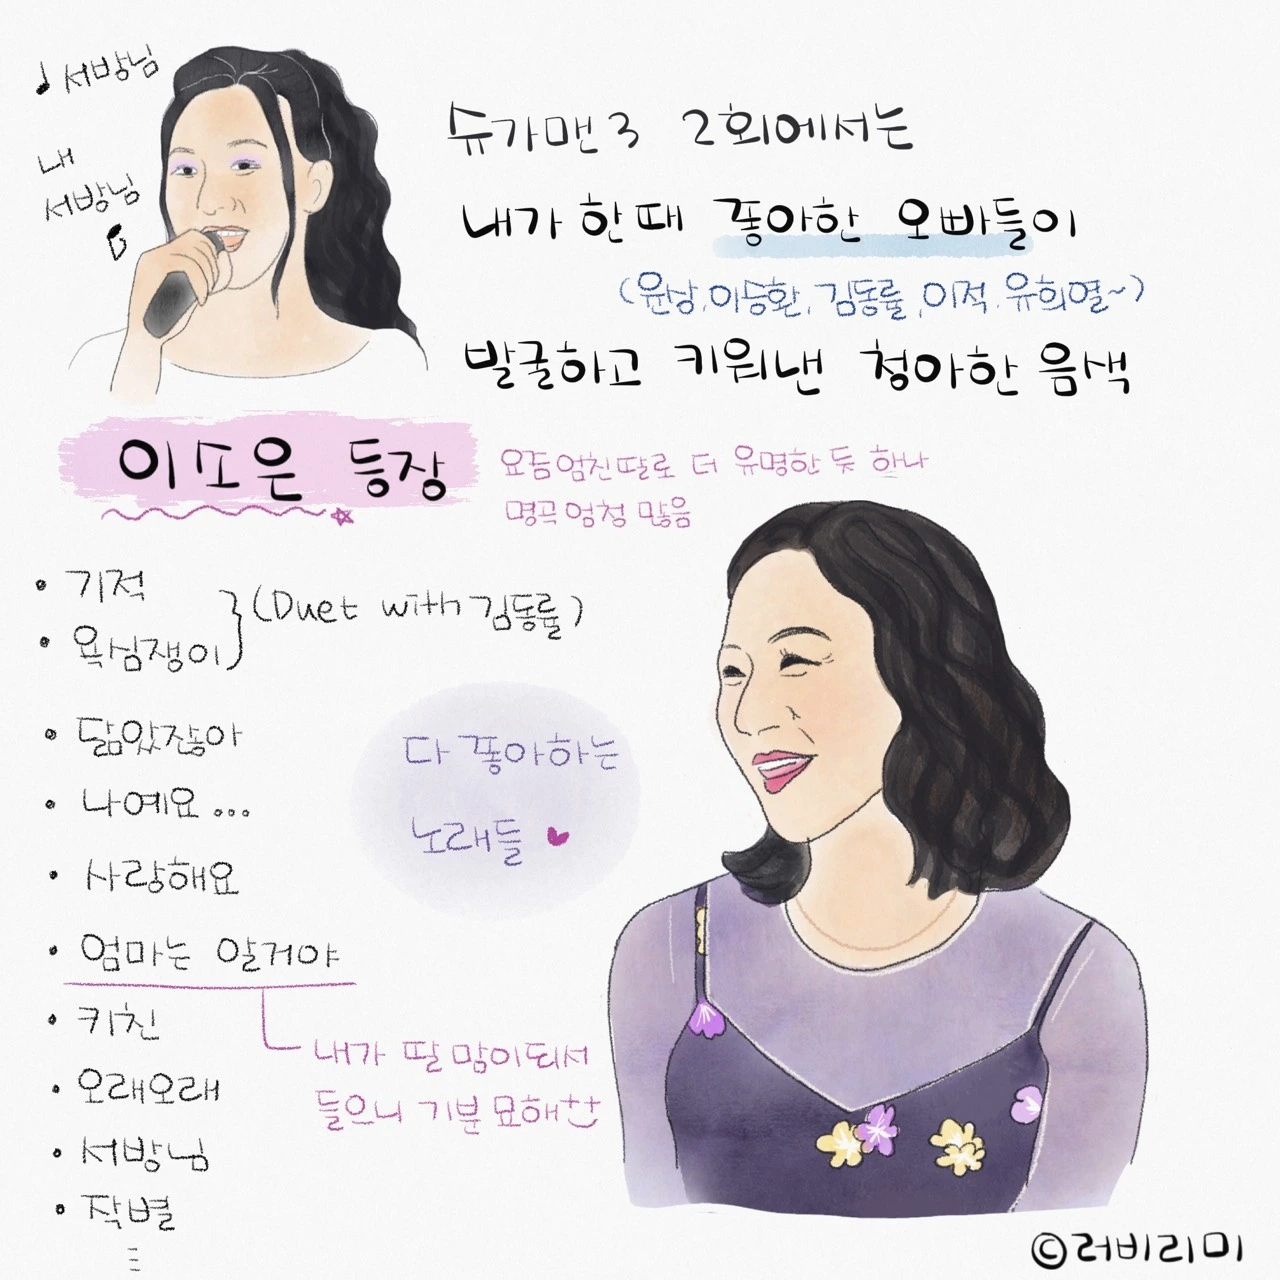 ♩서방님
내
서방님
슈가맨3 2회에서는
내가 한때 죵아한 오빠들이
(윤상,이승환,김동률,이적,유희열~)
발굴하고 키워낸 청아한 음색
이소은 등장
요즘엄친딸로 더 유명한 듯 하나
명곡엄청 많음
• 기적
• 욕심쟁이
(Duet with 김동률)
• 닮았잖아
• 나예요...
• 사랑해요
• 엄마는 알거야
• 키친
• 오래오래
• 서방님
• 작별
다 죵아하는
노래들 ♥
내가 딸맘이되서
들으니 기분묘해
©러비리미